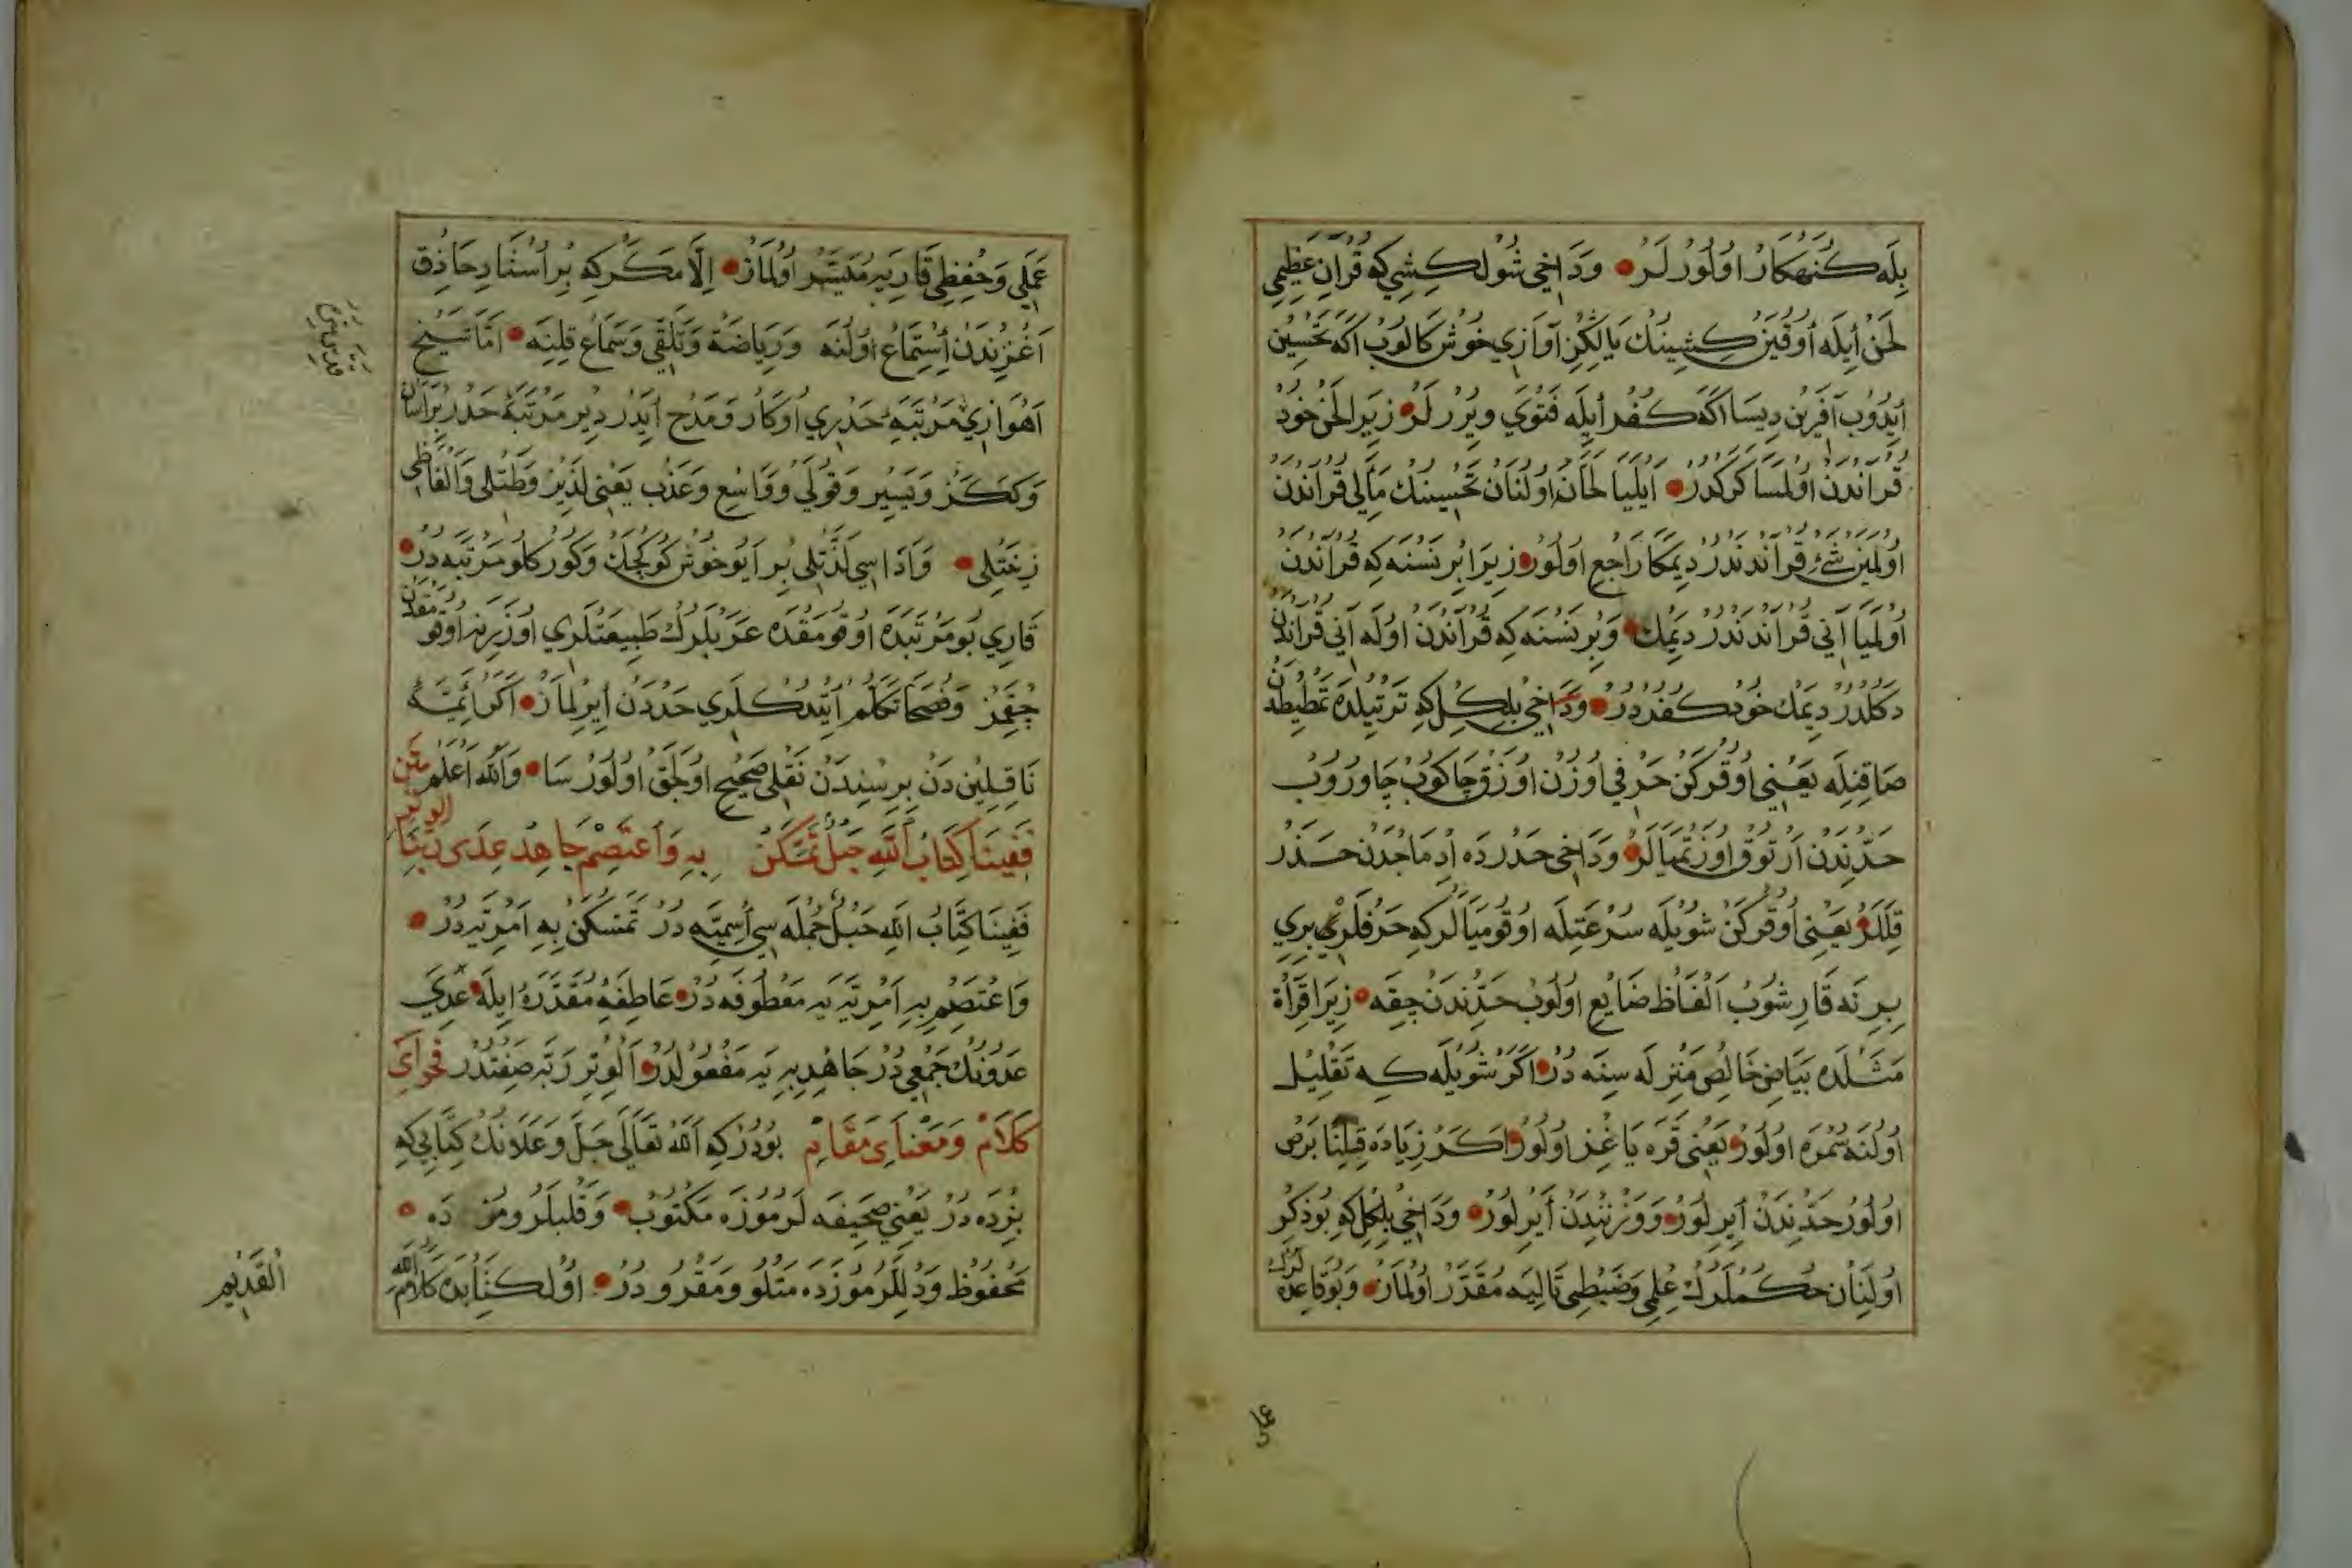 بِلَه كُنَهكَارْ اوُلُورْ لَرْ وَدَاخِى شُولْ كِشِي كِه قُرْاٰنِ عَظِيمِى
لَحَنْ أيلَه أوُقِيَنْ كِشِينُكْ يَاڭْلِزْ آوَازِي خُوشْ كَالُوبْ اَكَه تَحْسِينْ
أيدُوبْ آفَرِينْ دِيسَا اكَه كُفْرْ أيلَه فَتْوَي وِيرُرْ لَرْ زِيرَا لَحْنْ خُودْ
قُرْاٰندَنْ اوُلْمَسَا كَرَكْدُرْ اَيْلَيَا لَحَانَه اوُلُنَانْ تَحْسِينُكْ مَاٰلِى قُرْاٰندَنْ
اوُلْمِيَنْ شَئْ قُرْاٰندَنْدُرْ دِيمَكَا رَاجِعْ اوُلُورْ زِيرَا بِرْ نَسْنَه كِه قُرْاٰندَنْ
اوُلْمَيَا اٰنِي قُرْاٰندَنْدُرْ دِيمِكْ وَبِرْ نَسْنَه كِه قُرْاٰندَنْ اوُلَه اٰنِي قُرْاٰندَنْ
دَكُلْدُرْ دِيمَكْ خُودْ كُفْرْدُرْ وَدَاخِى بِلْكِلْ كِه تَرْتِيلْدَه تَمْطِيطْدَنْ
صَاقِنِلَه يَعْنِى اوُقُرْكَنْ حَرْفِى اوُزُنْ اوُزُنْ چَاكُوبْ چَاوُرُوبْ
حَدِّنْدَنْ اَرْتُوقْ اوُزَتْمَيَالَرْ وَدَاخِى حَدْرْدَه اِدْمَاجْدَنْ حَذَرْ
قِلَلَرْ يَعْنِى اوُقُرْكَنْ شُويْلَه سُرْعَتِلَه اوُقُومَيَالَرْ كِه حَرْفْلَرِي بِرِي
بِرِنَه قَارِشُوبْ اَلْفَاظْ ضَايِعْ اوُلُوبْ حَدِّنْدَنْ چِقَه زِيرَا قِرَأَةْ
مَثَلْدَه بَيَاضِ خَالِصْ مَنْزِلَه سِنَه دُرْ اكَرْ شُويْلَه كِه تَقْلِيلْ
اوُلُنَه سُمْرَه اوُلُورْ يَعْنِى قَرَه يَاغِزْ اوُلُورْ اكَرْ زِيَادَه قِلِنَا بَرَصْ
اوُلُورْ حَدِّنْدَنْ أيرِلُورْ وَوَزْنِنْدَنْ أيرِلُورْ وَدَاخِى بِلْكِلْ كِه بُو ذِكْرْ
اوُلُنَانْ حُكُملَرُكْ عِلْمِى وَضَبْطِى تَالِيَه مُقَدَّرْ اوُلْمَازْ وَبُو قَاعِدَه لَرُكْ
عَمَلِى وَحِفْظِى قَارِيَه مُيَسَّرْ اوُلْمَازْ اِلَّا مَكَرْ كِه بِرْ اُسْتَادِ حَاذِقْ
اَغْزِنْدَنْ أِسْتِمَاعْ اوُلُنَه وَرِيَاضَةْ وَتَلَقِّى وَسَمَاعْ قِلِنَه اَمَّا شَيْخِ
اَهْوَازِي مَرْتَبَهِٔ حَدْرِي اوُكَارْ وَمَدْحْ أيدَرْ دِيرْ مَرْتَبَهِٔ حَدْرْ بِرْ اٰسَانْ
وَكَكَزْ وَيَسِيرْ وَقُولَىْ وَوَاسِعْ وَعَذْبْ يَعْنِى لَذِيذْ وَطَتْلِى وَاَلْفَاظِى
زِينَتْلِى وَاَدَاسِي لَذَّتْلِى بِرْ اَيُو خُوشْ كُوكْچَكْ وَكُورْكْلُو مَرْتَبَه دُرْ
قَارِي بُو مَرْتَبَدَه اوُقُومَقْدَه عَرَبْلَرُكْ طَبِيعَتْلَرِي اوُزَرِينَه اوُقُومَقْدَنْ
چِقْمَزْ وَفُصَحَا تَكَلُّمْ أيتْدُكْلَرِي حَدْدَنْ أيرِلْمَازْ اكَرْ اَئِمَّهِٔ
نَاقِلِينْ دَنْ بِرِسِنْدَنْ نَقْلِ صَحِيحْ اوُلَجَقْ اوُلُورْسَا وَاللّٰهُ اَعْلَمُ مَتْن
فَفِينَا كِتَابُ اللّٰهِ حَبْلٌ تَمَسَّكَنْ بِهِ وَاعْتَصِمْ جَاهِدْ عِدَى رَبِّنَا الوِتْرِ
فَفِينَا كِتَابُ اللّٰهِ حَبْلٌ جُمْلَه سِي اُسْمِيَّه دُرْ تَمَسَّكَنْ بِهِ اَمْرِيَّه دُرْ
وَاعْتَصِمْ بِهِ اَمْرِيَّه يَه مَعْطُوفَه دُرْ عَاطِفَهِٔ مُقَدَّرَه اِيلَه عِدَي
عَدُوُّنُكْ جَمْعِي دُرْ جَاهِدْ بِهِ يَه مَفْعُولْدُرْ اَلْوِتْرِ رَبَّه صِفَتْدُرْ فَحْوَاىِ
كَلَامْ وَمَعْنَاىِ مَقَامْ بُودُرْ كِه اَللّٰهُ تَعَالَى جَلَّ وَعَلَانُكْ كِتَابِى كِه
بِزْدَه دُرْ يَعْنِى صَحِيفَه لَرْمُوزْدَه مَكْتُوبْ وَقَلْبلَرُومُزْ دَه
مَحْفُوظْ وَدِلْلَرْمُوزْدَه مَتْلُوْ وَمَقْرُوْ دُرْ اوُلْ كِتَابْدَه كَلَامُ اللّٰهِ
اَلْقَدِيمِ